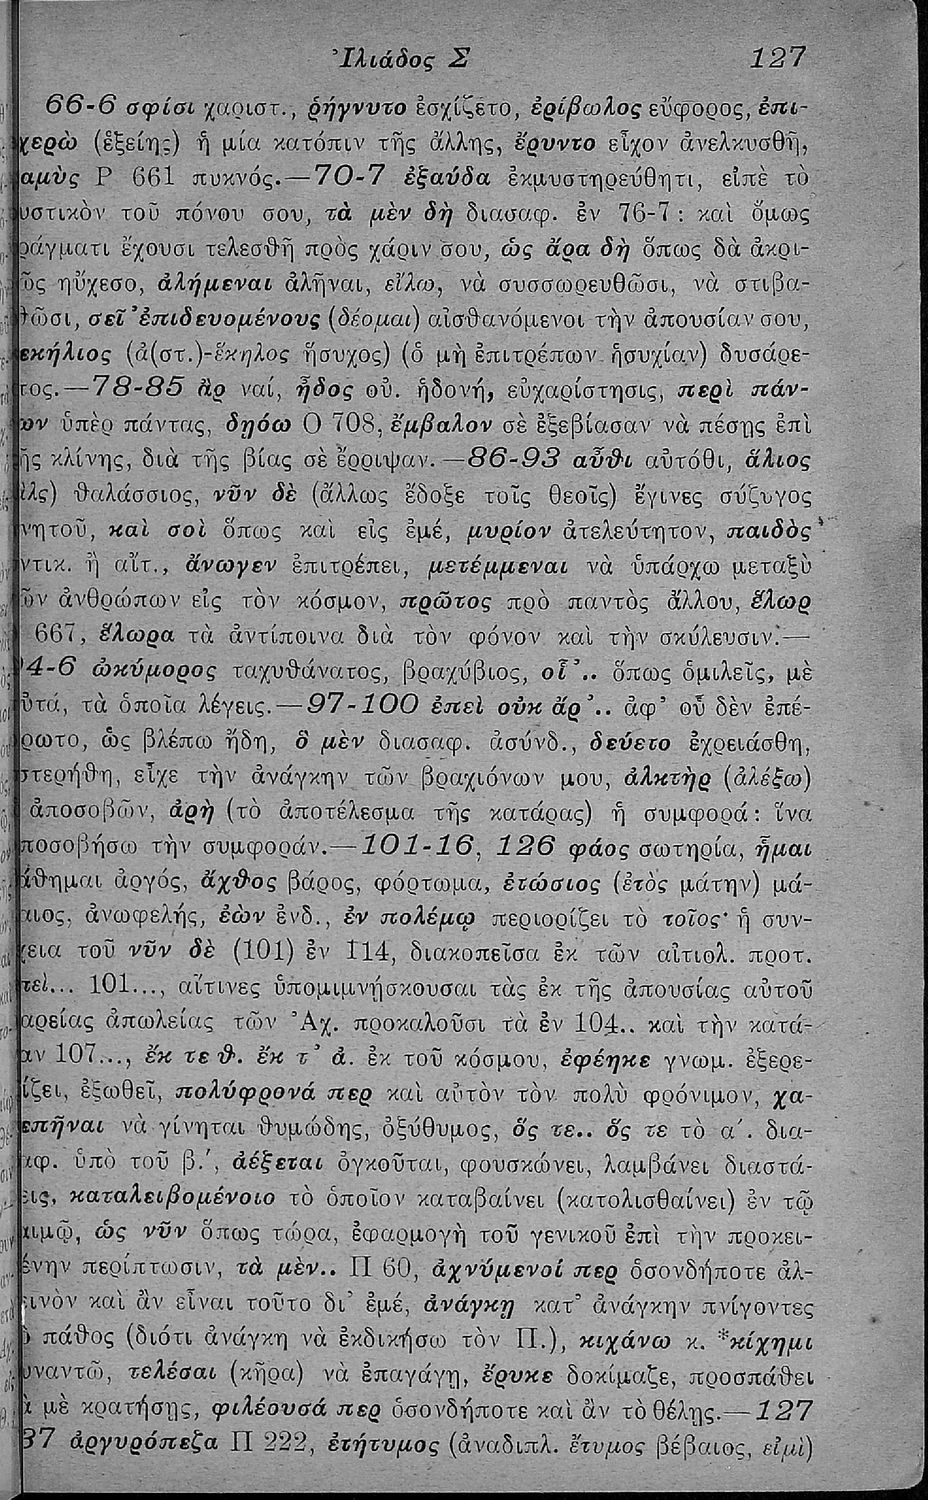 Ἰλιάδος Σ 127
66-6 σφίσι χαριστ., ῥήγνυτο ἐσχίζετο, ἐρίβωλος εὔφορος, ἐπι-
χερὼ (ἑξείης) ἡ μία κατόπιν τῆς ἄλλης, ἔρυντο εἶχον ἀνελκυσθῆ,
αμὺς Ρ 661 πυκνός.—70-7 ἐξαύδα ἐκμυστηρεύθητι, εἰπὲ τὸ
υστικὸν τοῦ πόνου σου, τὰ μὲν δὴ διασαφ. ἐν 76-7: καὶ ὅμως
ράγματι ἔχουσι τελεσθῆ πρὸς χάριν σου, ὡς ἄρα δὴ ὅπως δὰ ἀκρι-
ῶς ηὔχεσο, ἀλήμεναι ἀλῆναι, εἴλω, νὰ συσσωρευθῶσι, νὰ στιβα-
θῶσι, σεῖ' ἐπιδευομένους (δέομαι) αἰσθανόμενοι τὴν ἀπουσίαν σου,
εκήλιος (ἀ(στ.)-ἕκηλος ἥσυχος) (ὁ μὴ ἐπιτρέπων ἡσυχίαν) δυσάρε-
τος.—78-85 ἂρ ναί, ἦδος οὐ. ἡδονή, εὐχαρίστησις, περὶ πάν-
ων ὑπὲρ πάντας, δῃόω Ο 708, ἔμβαλον σὲ ἐξεβίασαν νὰ πέσῃς ἐπὶ
ῆς κλίνης, διὰ τῆς βίας σὲ ἔρριψαν.—86-93 αὖθι αὐτόθι, ἅλιος
ἅλς) θαλάσσιος, νῦν δὲ (ἄλλως ἔδοξε τοῖς θεοῖς) ἔγινες σύζυγος
νητοῦ, καὶ σοὶ ὅπως καὶ εἰς ἐμέ, μυρίον ἀτελεύτητον, παιδὸς
ντικ. ἢ αἰτ., ἄνωγεν ἐπιτρέπει, μετέμμεναι νὰ ὑπάρχω μεταξὺ
ῶν ἀνθρώπων εἰς τὸν κόσμον, πρῶτος πρὸ παντὸς ἄλλου, ἕλωρ
667, ἕλωρα τὰ ἀντίποινα διὰ τὸν φόνον καὶ τὴν σκύλευσιν.—
4-6 ὠκύμορος ταχυθάνατος, βραχύβιος, οἷ'.. ὅπως ὁμιλεῖς, μὲ
ὐτά, τὰ ὁποῖα λέγεις.—97-100 ἐπεὶ οὐκ ἄρ'.. ἀφ' οὗ δὲν ἐπέ-
ρωτο, ὡς βλέπω ἤδη, ὃ μὲν διασαφ. ἀσύνδ., δεύετο ἐχρειάσθη,
στερήθη, εἶχε τὴν ἀνάγκην τῶν βραχιόνων μου, ἀλκτὴρ (ἀλέξω)
ἀποσοβῶν, ἀρὴ (τὸ ἀποτέλεσμα τῆς κατάρας) ἡ συμφορά: ἵνα
ποσοβήσω τὴν συμφοράν.—101-16, 126 φάος σωτηρία, ἧμαι
άθημαι ἀργός, ἄχθος βάρος, φόρτωμα, ἐτώσιος (ἐτὸς μάτην) μά-
αιος, ἀνωφελής, ἐὼν ἐνδ., ἐν πολέμῳ περιορίζει τὸ τοῖος· ἡ συν-
χεια τοῦ νῦν δὲ (101) ἐν 114, διακοπεῖσα ἐκ τῶν αἰτιολ. προτ.
πεὶ... 101..., αἵτινες ὑπομιμνήσκουσαι τὰς ἐκ τῆς ἀπουσίας αὐτοῦ
αρείας ἀπωλείας τῶν Ἀχ. προκαλοῦσι τὰ ἐν 104.. καὶ τὴν κατά-
αν 107..., ἔκ τε θ. ἔκ τ' ἀ. ἐκ τοῦ κόσμου, ἐφέηκε γνωμ. ἐξερε-
ίζει, ἐξωθεῖ, πολύφρονά περ καὶ αὐτὸν τὸν πολὺ φρόνιμον, χα-
επῆναι νὰ γίνηται θυμώδης, ὀξύθυμος, ὅς τε.. ὅς τε τὸ α'. δια-
αφ. ὑπὸ τοῦ β.', ἀέξεται ὀγκοῦται, φουσκώνει, λαμβάνει διαστά-
εις, καταλειβομένοιο τὸ ὁποῖον καταβαίνει (κατολισθαίνει) ἐν τῷ
αιμῷ, ὡς νῦν ὅπως τώρα, ἐφαρμογὴ τοῦ γενικοῦ ἐπὶ τὴν προκει-
ένην περίπτωσιν, τὰ μὲν.. Π 60, ἀχνύμενοί περ ὁσονδήποτε ἀλ-
εινὸν καὶ ἂν εἶναι τοῦτο δι' ἐμέ, ἀνάγκῃ κατ' ἀνάγκην πνίγοντες
ὸ πάθος (διότι ἀνάγκη νὰ ἐκδικήσω τὸν Π.), κιχάνω κ. *κίχημι
υναντῶ, τελέσαι (κῆρα) νὰ ἐπαγάγῃ, ἔρυκε δοκίμαζε, προσπάθει
ὰ μὲ κρατήσῃς, φιλέουσά περ ὁσονδήποτε καὶ ἂν τὸ θέλῃς.—127
37 ἀργυρόπεζα Π 222, ἐτήτυμος (ἀναδιπλ. ἔτυμος βέβαιος, εἰμὶ)